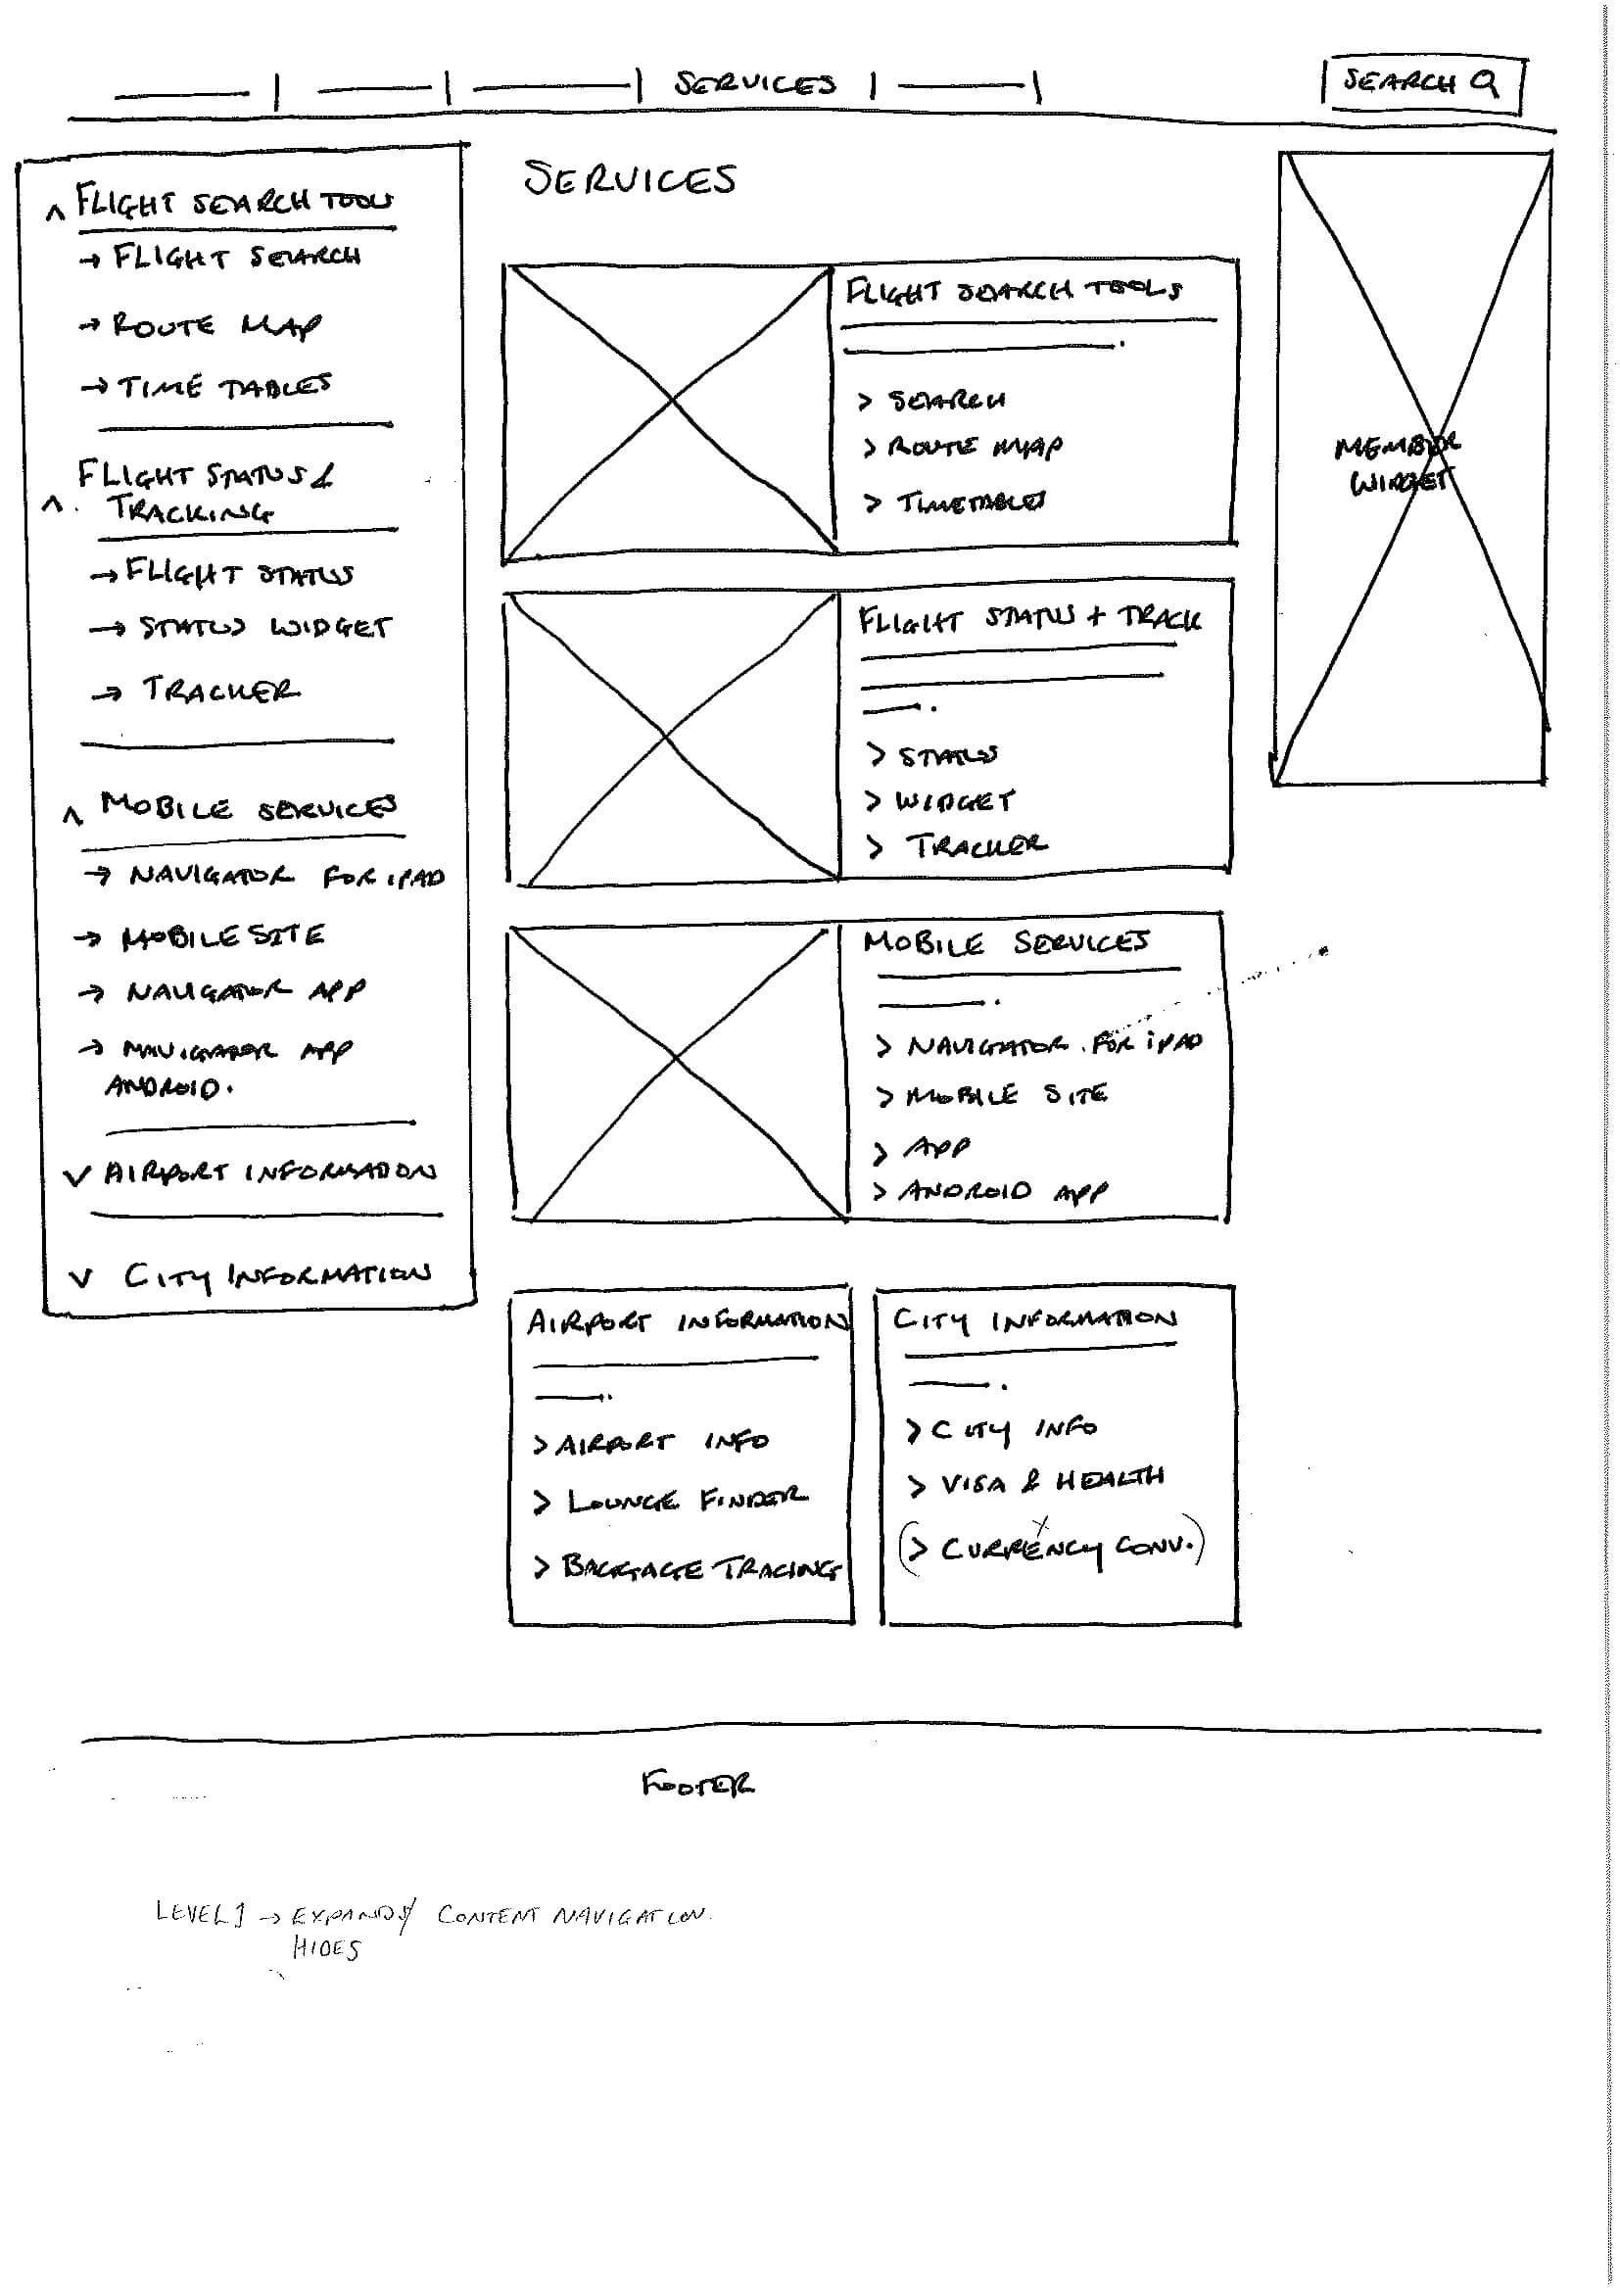 SERVICES
SEARCH
FLIGHT SEARCH TOOLS
→ FLIGHT SEARCH
→ ROUTE MAP
→ TIME TABLES
FLIGHT STATUS &
TRACKING
→ FLIGHT STATUS
→ STATUS WIDGET
→ TRACKER
MOBILE SERVICES
→ NAVIGATOR FOR iPAD
→ MOBILE SITE
→ NAVIGATOR APP
→ NAVIGATOR APP
ANDROID.
AIRPORT INFORMATION
CITY INFORMATION
SERVICES
FLIGHT SEARCH TOOLS
> SEARCH
> ROUTE MAP
> TIMETABLES
FLIGHT STATUS + TRACK
> STATUS
> WIDGET
> TRACKER
MOBILE SERVICES
> NAVIGATOR FOR iPAD
> MOBILE SITE
> APP
> ANDROID APP
AIRPORT INFORMATION
> AIRPORT INFO
> LOUNGE FINDER
> BAGGAGE TRACING
CITY INFORMATION
> CITY INFO
> VISA & HEALTH
(> CURRENCY CONV.)
MEMBER
WIDGET
FOOTER
LEVEL 1 → EXPANDS/ CONTENT NAVIGATION.
HIDES